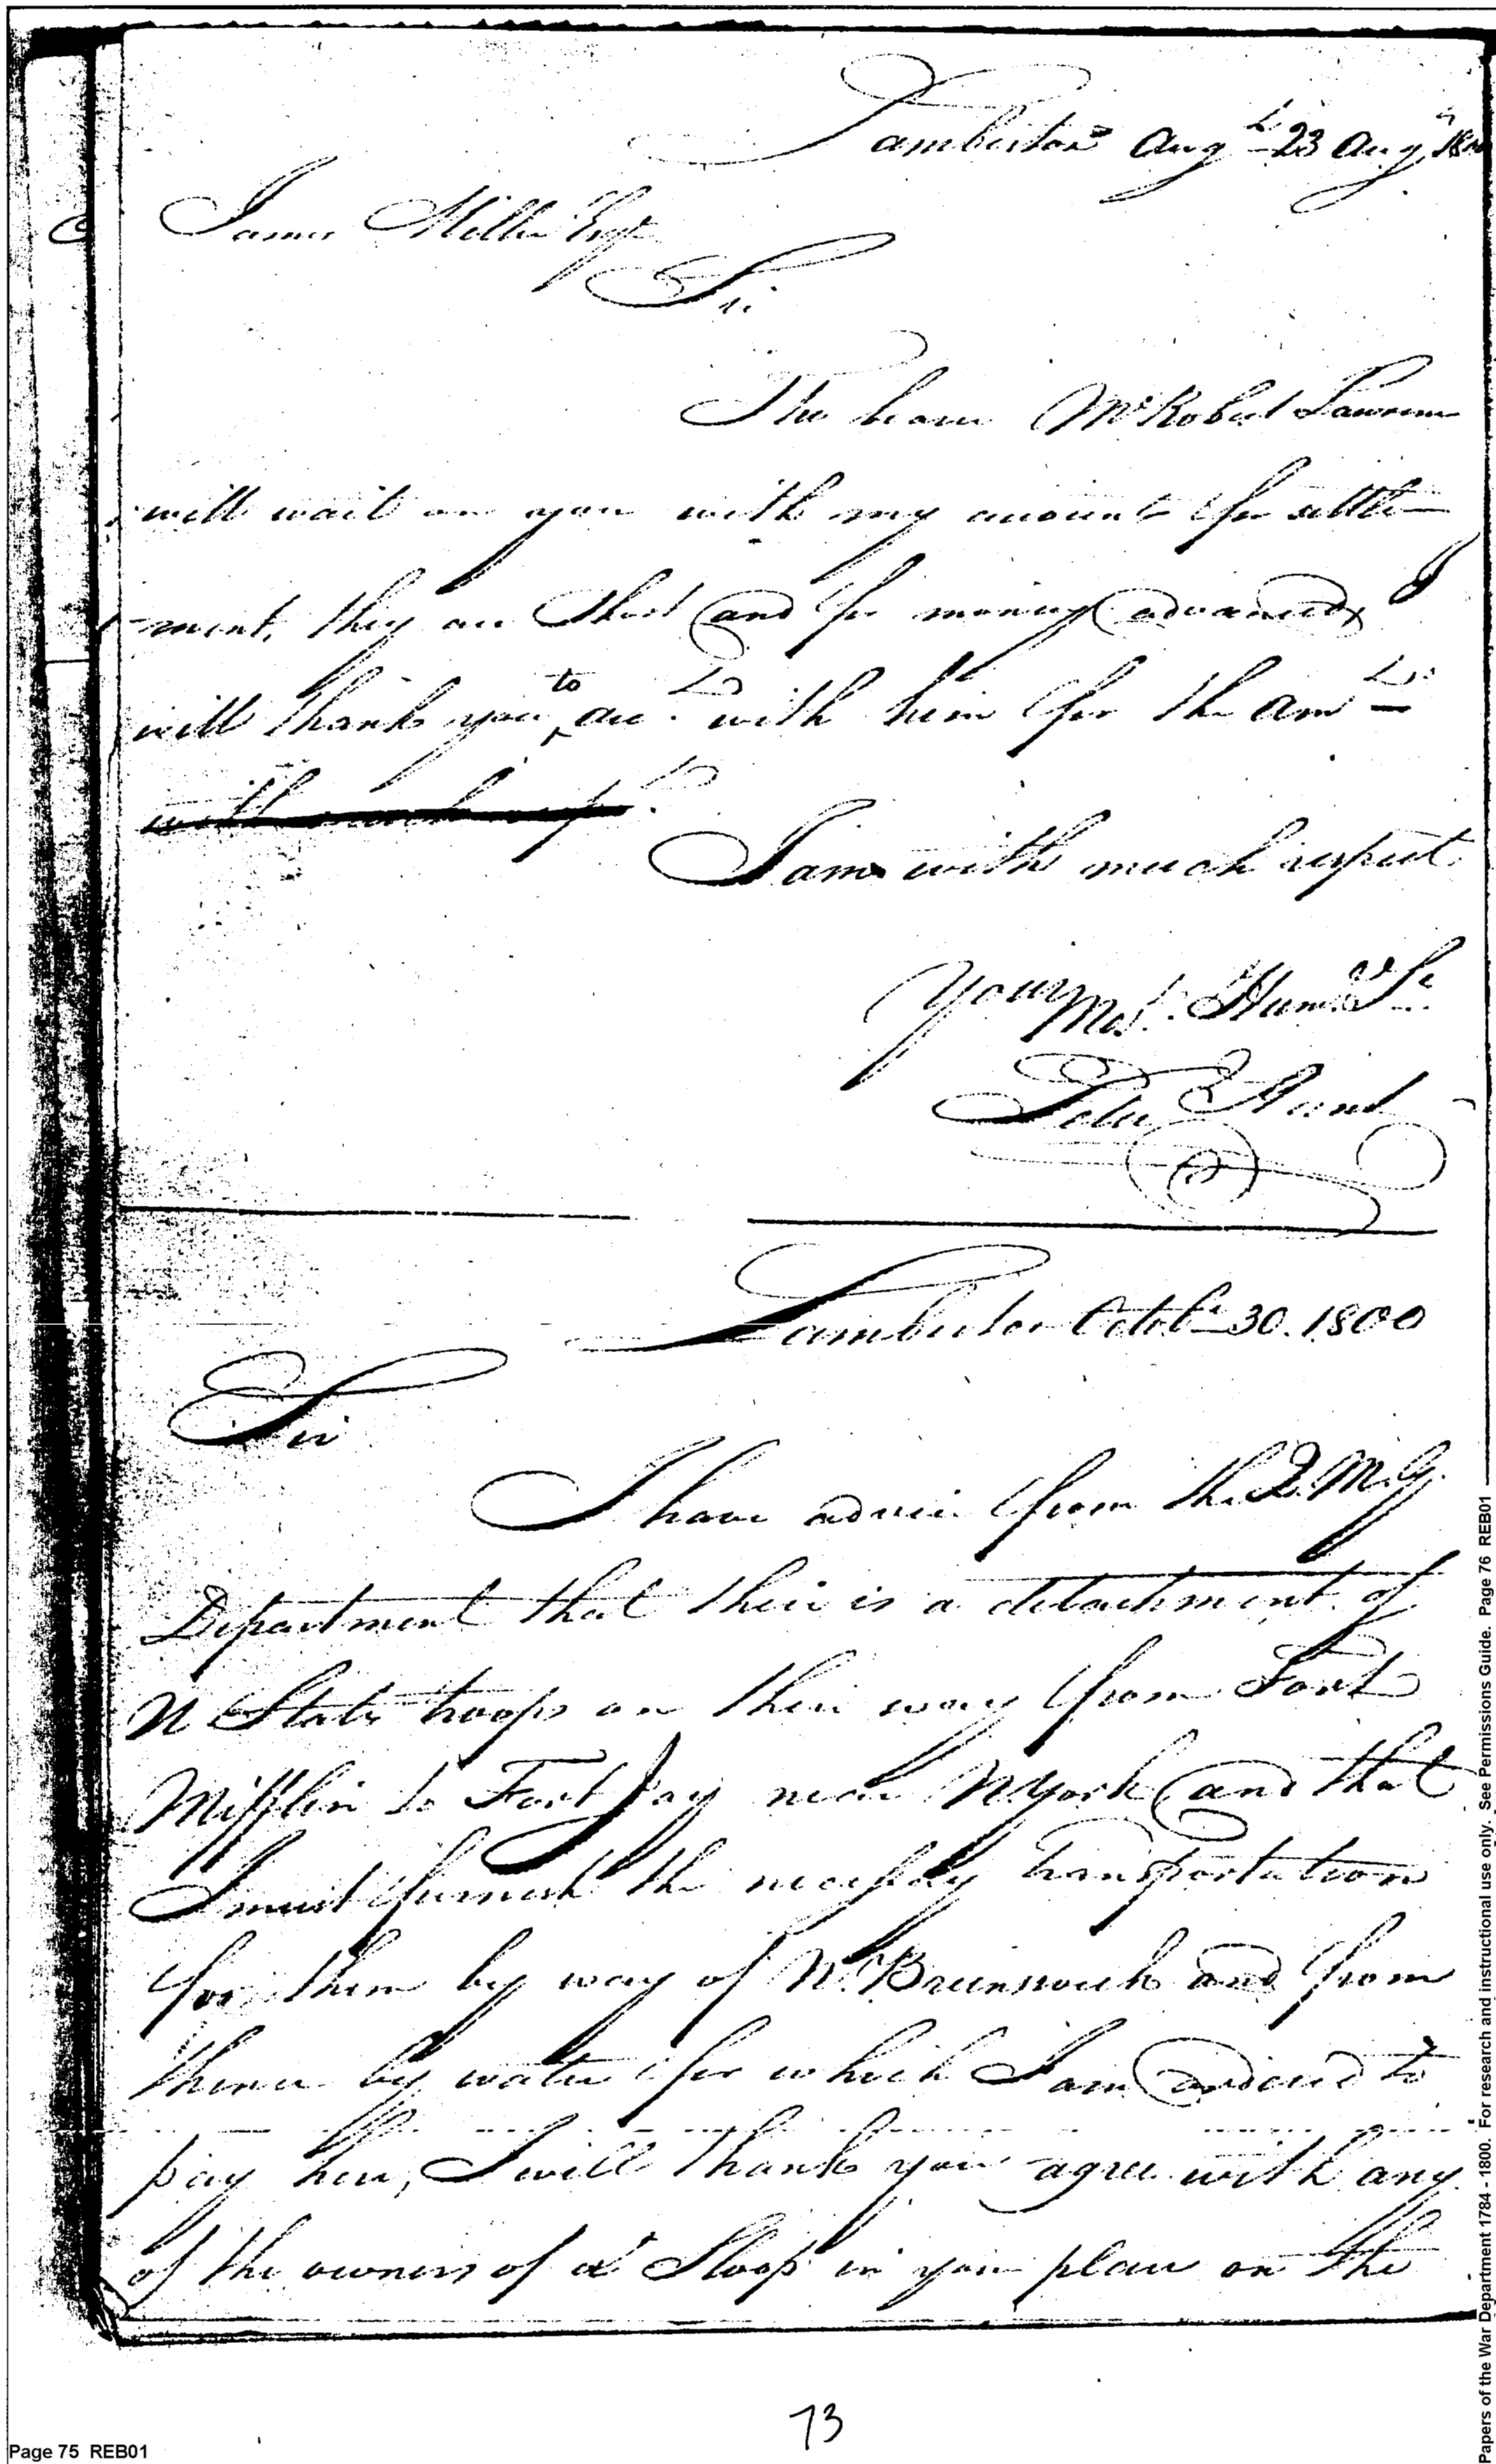 Lamberton Augt 23 Aug 1800
James Miller Esqr
Sir
The bearer Mr Robert Lawrence
will wait on you with my account for settle-
ment, they are Short and for money advanced I
will thank you to acct. with him for the Amt
with much resp.
I am with much respect
Your
Most. Humb Se
Peter Hunt
Lamberton Octobr 30. 1800
Sir
I have advice from the Q. M. G.
Department that their is a detachment of
U States troops on their way from Fort
Mifflin to Fort Jay near N York and that
I must furnish the necessary transportation
for them by way of N. Brunswick and from
thence by water for which I am ordered to
pay here, I will thank you agree with any
of the owners of a Sloop in your place on the
73
Page 75 REB01
Papers of the War Department 1784 - 1800. For research and instructional use only. See Permissions Guide. Page 76 REB01